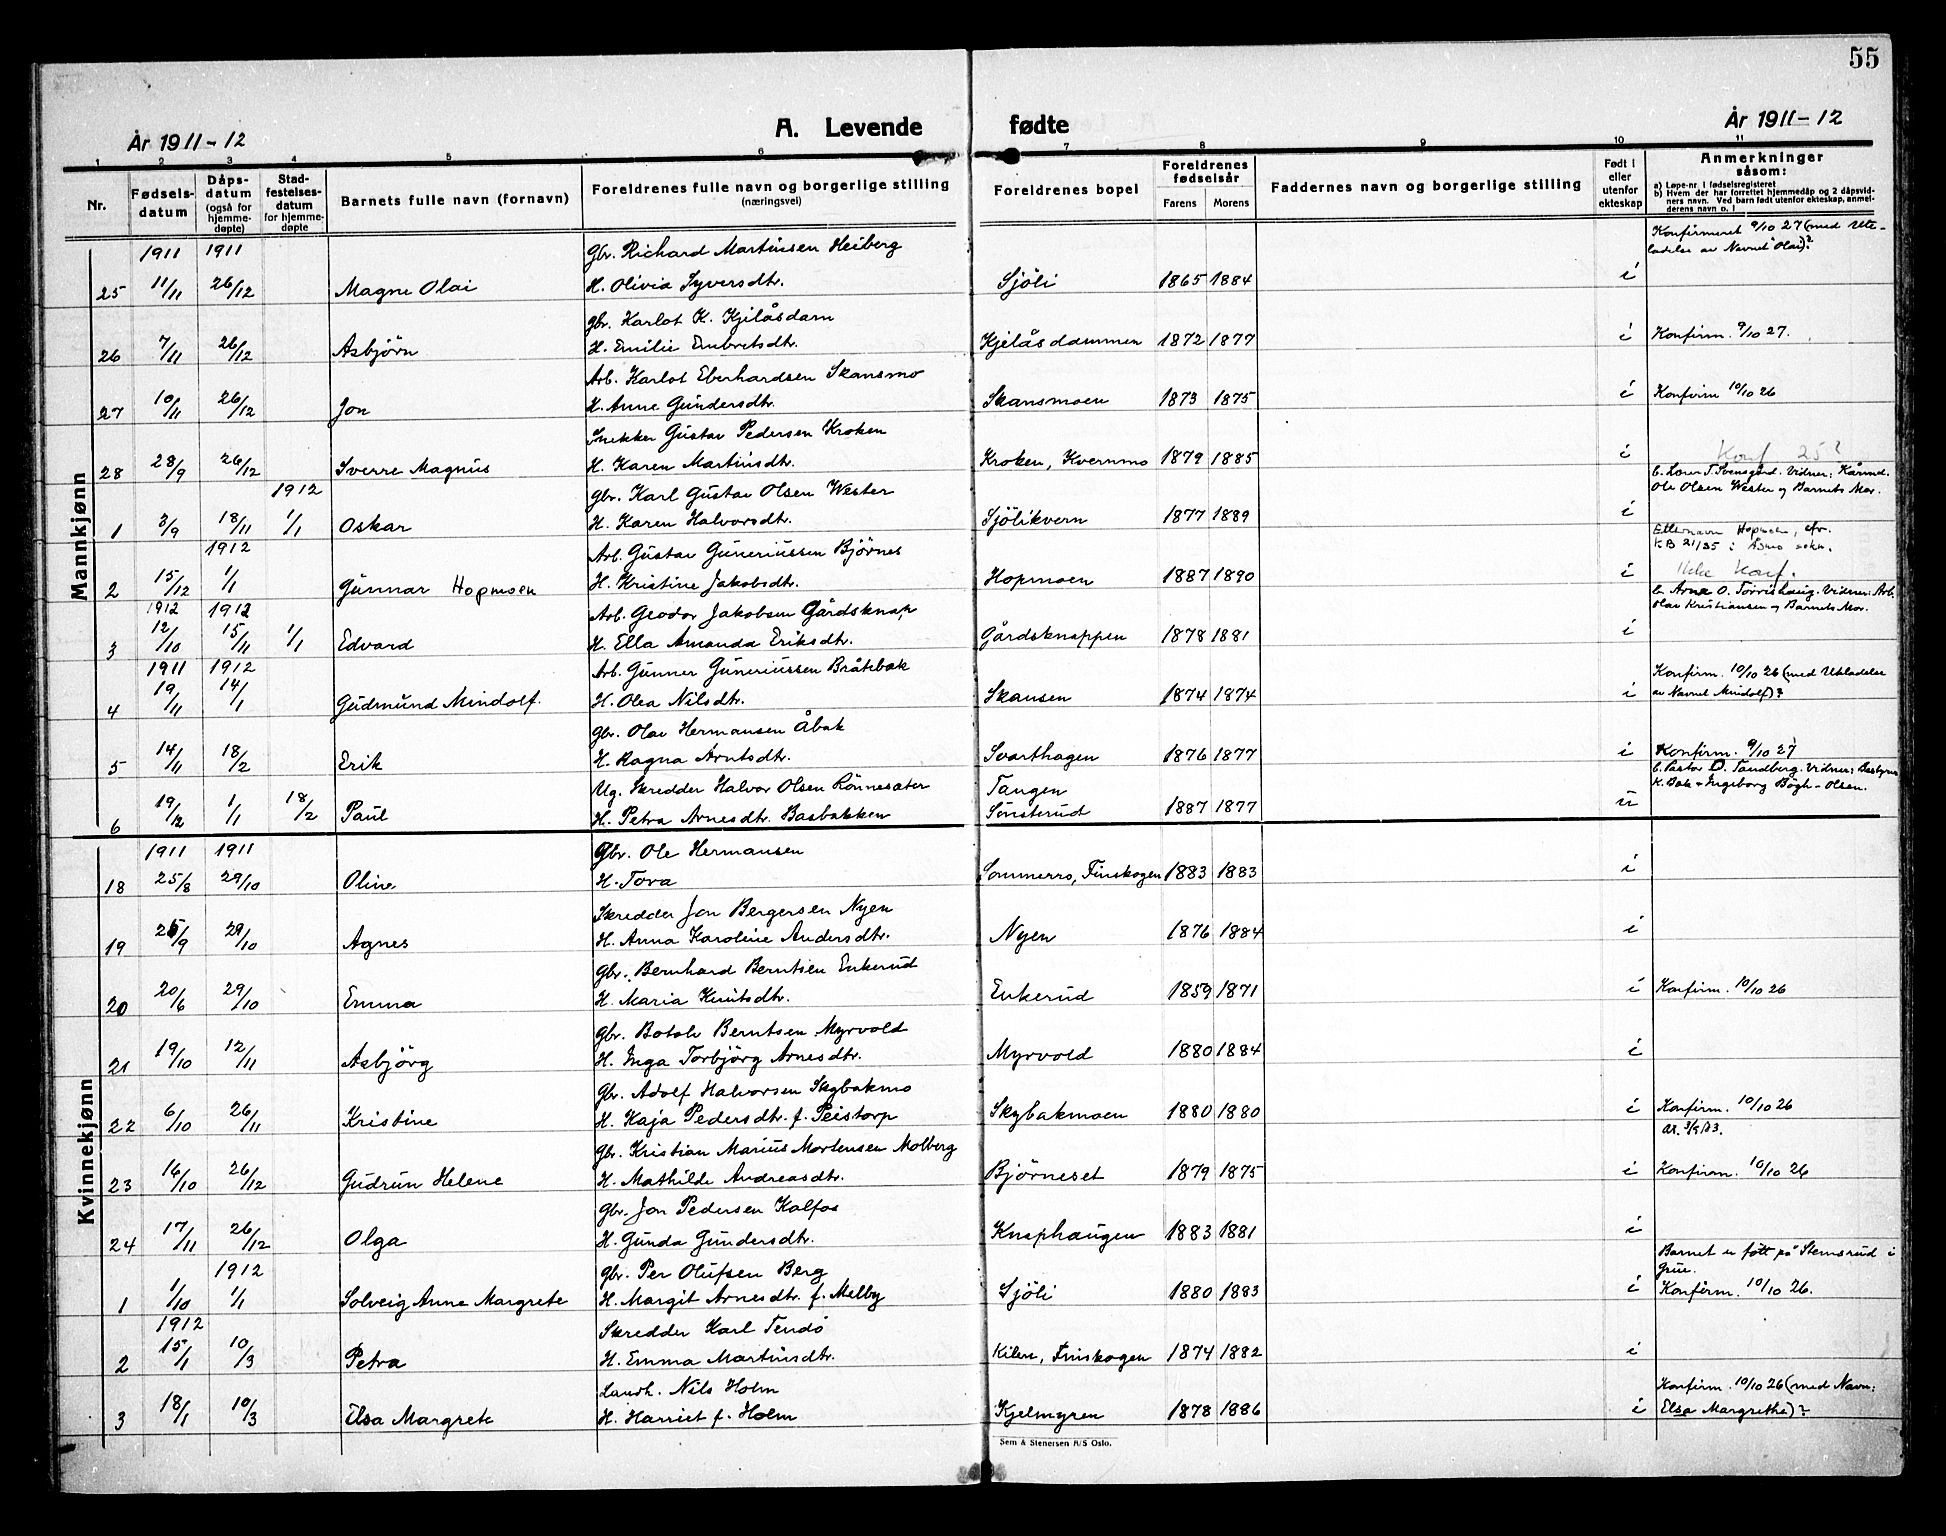 55
År 1911-12 A. Levende fødte År 1911-12
1 2 3 4 5 6 7 8 9 10 11
Nr. Fødselsdatum Dåpsdatum (også for hjemmedøpte) Stadfestelsesdatum for hjemmedøpte Barnets fulle navn (fornavn) Foreldrenes fulle navn og borgerlige stilling (næringsvei) Foreldrenes bopel Foreldrenes fødselsår Farens Morens Faddernes navn og borgerlige stilling Født i eller utenfor ekteskap Anmerkninger såsom:
a) Løpe-nr. i fødselsregisteret
b) Hvem der har forrettet hjemmedåp og 2 dåpsvidners navn. Ved barn født utenfor ekteskap, anmelderens navn o. l
Mannkjønn
1911 1911 Gbr. Richard Martinsen Heiberg Konfirmeret 9/10 27 (med Uteladelse av Navnet Olai)?
25 11/11 26/12 Magne Olai H. Olivia Syversdtr. Sjöli 1865 1884 i
Gbr. Karlot K. Kjilåsdam
26 7/11 26/12 Asbjörn H. Emilie Embretsdtr. Kjelåsdammen 1872 1877 i Konfirm. 9/10 27.
Arb. Karlot Eberhardsen Skansmo
27 10/11 26/12 Jon H. Anne Gundersdtr. Skansmoen 1873 1875 i Konfirm 10/10 26
Snekker Gustav Pedersen Kroken
28 28/9 26/12 Sverre Magnus H. Karen Martinsdtr. Kroken, Kvernmo 1879 1885 i Konf 25?
1912 Gbr. Karl Gustav Olsen Wester b. Lærer T. Svensgård. Vidner: Kårmd. Ole Olsen Wester og Barnets Mor.
1 3/9 18/11 1/1 Oskar H. Karen Halvorsdtr. Sjölikvern 1877 1889 i
1912 Arb. Gustav Guneriussen Björnes Etternavn Hopmoen, cfr. KB 21/35 i Åsmo sokn.
2 15/12 1/1 Gunnar Hopmoen H. Kristine Jakobsdtr. Hopmoen 1887 1890 i Ikke Konf.
1912 1912 Arb. Geodor Jakobsen Gårdsknap b. Arne O. Torrishaug. Vidner: Arb. Olav Kristiansen og Barnets Mor.
3 12/10 15/11 1/1 Edvard H. Ella Amanda Eriksdtr. Gårdsknappen 1878 1881 i
1911 1912 Arb. Gunner Guneriussen Bråtebak Konfirm. 10/10 26 (med Utsladelse
4 19/11 14/1 Gudmund Mindolf. H. Olea Nilsdtr. Skansen 1874 1874 i av Navnet Mindolf)?
Gbr. Olav Hermansen Åbak
5 14/11 18/2 Erik H. Ragna Arntsdtr. Svarthagen 1876 1877 i Konfirm. 9/10 27
Ug. Skredder Halvor Olsen Rönnesæter Tangen b. Pastor D. Tandberg. Vidner: Bestyrer K. Bak & Ingeborg Bögh-Olsen.
6 19/12 1/1 18/2 Paul H. Petra Arnesdtr. Basbakken Sönsterud 1887 1877 u
Kvinnekjønn
1911 1911 Gbr. Ole Hermansen
18 25/8 29/10 Oline H. Tova Sommerro, Finskogen 1883 1883 i
Skredder Jon Bergersen Nyen
19 25/9 29/10 Agnes H. Anna Karoline Andersdtr. Nyen 1876 1884 i
Gbr. Bernhard Berntsen Enkerud
20 20/6 29/10 Emma H. Maria Knutsdtr. Enkerud 1859 1871 i Konfirm. 10/10 26
Gbr. Botolv Berntsen Myrvold
21 19/10 12/11 Asbjörg H. Inga Torbjörg Arnesdtr. Myrvold 1880 1884 i
Gbr. Adolf Halvorsen Skybakmo
22 6/10 26/11 Kristine H. Kaja Pedersdtr. f. Peistorp Skybakmoen 1880 1880 i Konfirm. 10/10 26
Gbr. Kristian Marius Mortensen Molberg
23 16/10 26/12 Gudrun Helene H. Mathilde Andreasdtr. Björneset 1879 1875 i Konfirm. 10/10 26
Gbr. Jon Pedersen Kalfos
24 17/11 26/12 Olga H. Gunda Gundersdtr. Knaphaugen 1883 1881 i
1912 Gbr. Per Olufsen Berg Barnet er født på Stemsrud i Grue.
1 1/10 1/1 Solveig Anne Margrete H. Margit Arnesdtr. f. Melby Sjöli 1880 1883 i Konfirm. 10/10 26.
1912 Skredder Karl Tendö
2 15/1 10/3 Petra H. Emma Martinsdtr. Kilen, Finskogen 1874 1882 i
Landh. Nils Holm Konfirm. 10/10 26 (med Navn:
3 18/1 10/3 Elsa Margrete H. Harriet f. Holm Kjelmyren 1878 1886 i Elsa Margrethe)?
Sem & Stenersen A/S Oslo.